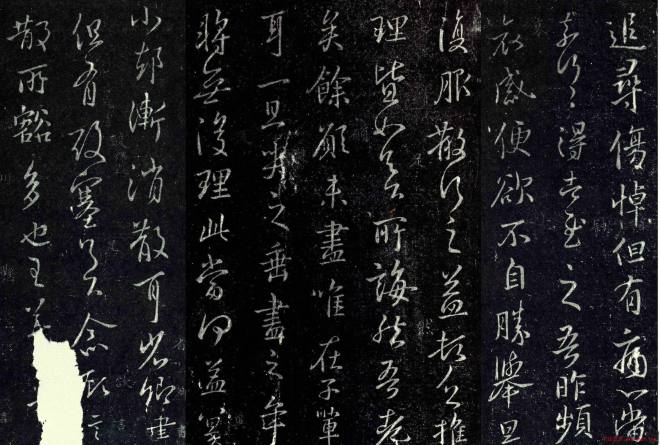 追尋傷悼但有痛心當
奈何〻得告慰之吾昨頻
哀感便欲不自勝舉旦
復服散行之益頓乏推
理皆如足下所誨然吾老
矣餘願未盡唯在子輩
耳一旦哭之垂盡之年
將無復理此當何益冀
小却漸消散耳省卿書
但有酸塞足下念故言
散所豁多也王羲